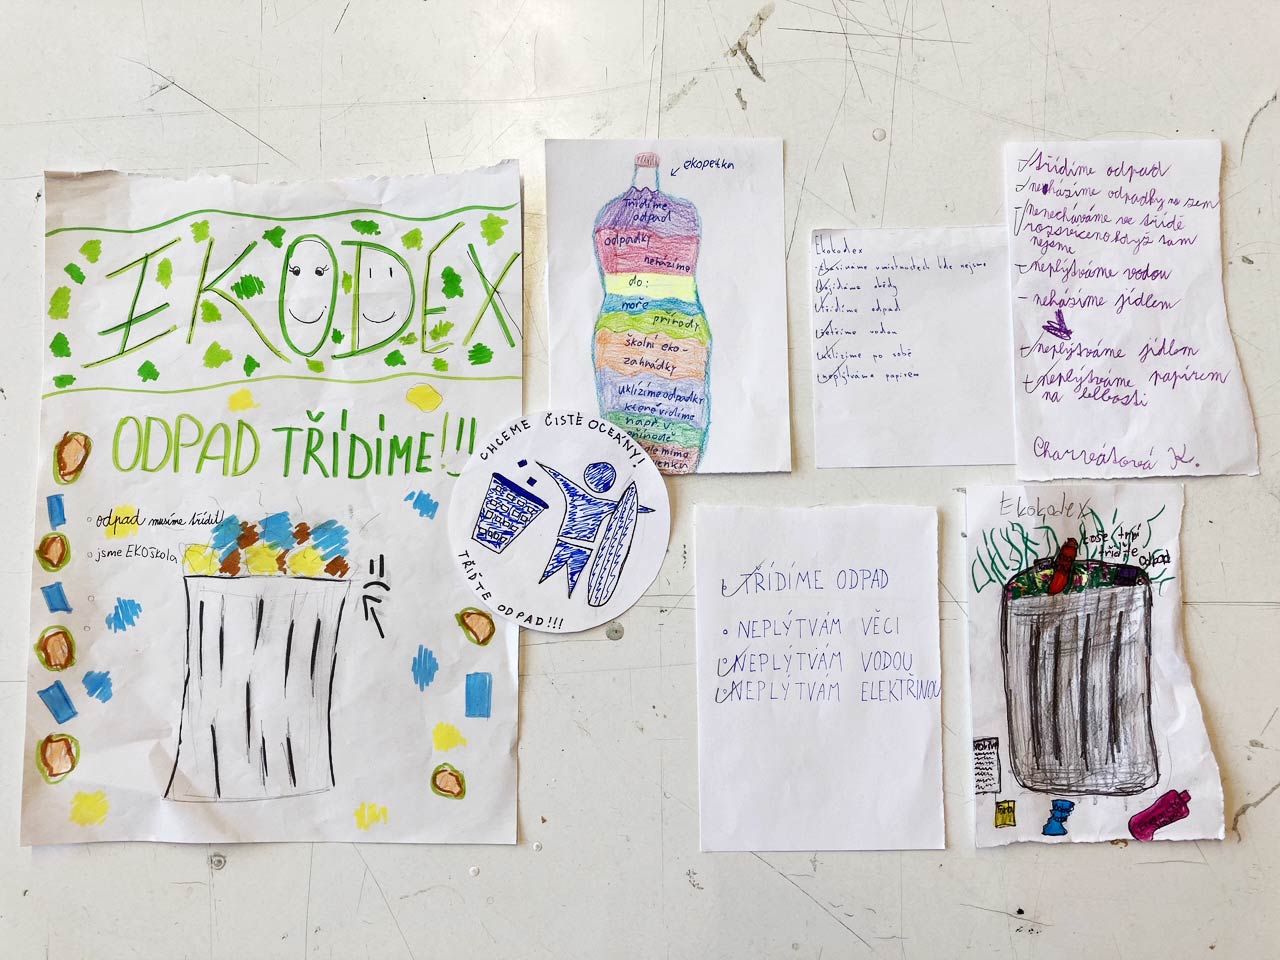 EKODEX
ODPAD TŘÍDÍME!!!
odpad musíme třídit!
jsme EKOškola
CHCEME ČISTÉ OCEÁNY!
TŘIĎTE ODPAD!!!
ekopetka
Třídíme
odpad
odpadky
neházíme
do:
moře
přírody
školní eko-
zahrádky
uklízíme odpadky
které vidíme
např. v
přírodě
Ekokodex
zhasínáme v místnostech kde nejsme
třídíme odpad
šetříme vodou
uklízíme po sobě
neplýtváme papírem
třídíme odpad
neházíme odpadky na zem
nenecháváme ve třídě
rozsvíceno když tam
nejsme
neplýtváme vodou
- neházíme jídlem
neplýtváme jídlem
neplýtváme papírem
na blbosti
Charvátová K.
TŘÍDÍME ODPAD
NEPLÝTVÁM VĚCI
NEPLÝTVÁM VODOU
NEPLÝTVÁM ELEKTŘINOU
Ekokodex
koše trpí
třiďte
odpad